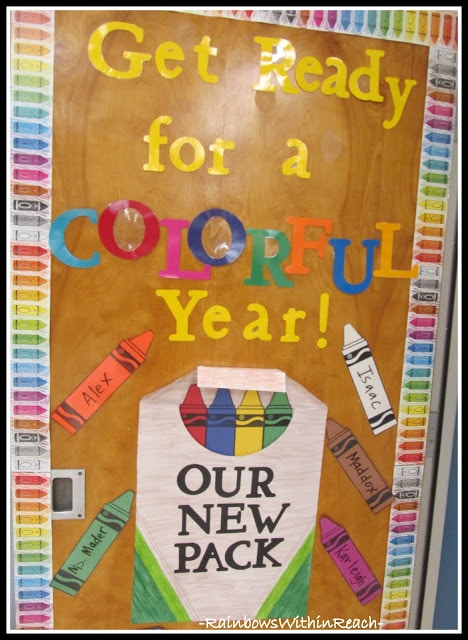 Get Ready
for a
COLORFUL
Year!
Alex
Isaac
Maddox
OUR
NEW
PACK
Ms. Mader
Karleigh
-RainbowsWithinReach-